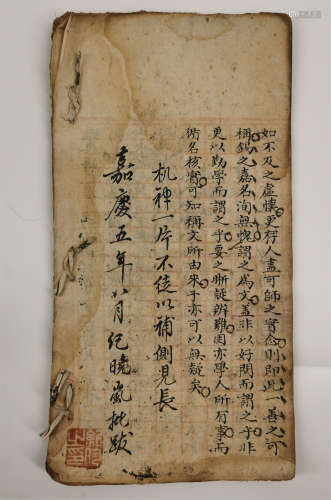 如不及之虛懷更得人盡可師之實念則即此一善之可
稱錫之嘉名洵無愧謂之為文蓋非以好問而謂之乎非
更以勤學而謂之乎要之晰疑辨難固亦學人所有事而
術名核實可知稱文所由來子亦可以無疑矣
机神一片不徒以補側見長
嘉慶五年八月紀曉嵐批跋